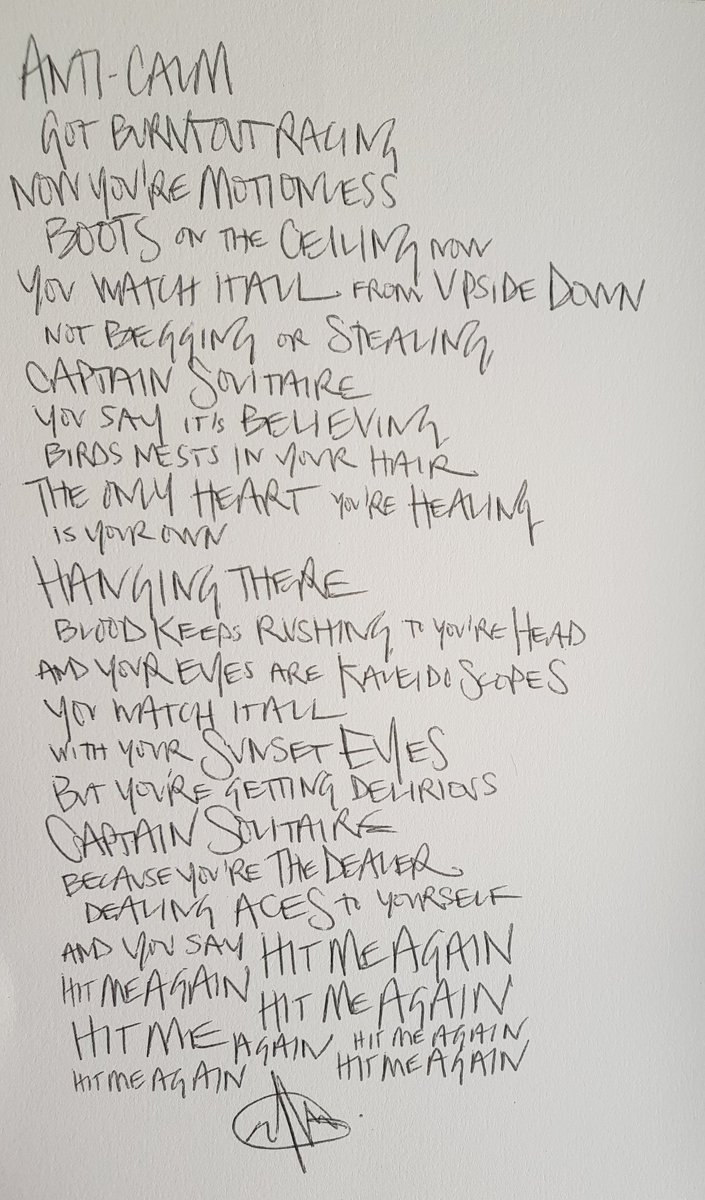 ANTI-CALM
GOT BURNT OUT RACING
NOW YOU'RE MOTIONLESS
BOOTS ON THE CEILING NOW
YOU WATCH IT ALL FROM UPSIDE DOWN
NOT BEGGING OR STEALING
CAPTAIN SOLITAIRE
YOU SAY IT'S BELIEVING
BIRDS NESTS IN YOUR HAIR
THE ONLY HEART YOU'RE HEALING
IS YOUR OWN
HANGING THERE
BLOOD KEEPS RUSHING TO YOU'RE HEAD
AND YOUR EYES ARE KALEIDOSCOPES
YOU WATCH IT ALL
WITH YOUR SUNSET EYES
BUT YOU'RE GETTING DELIRIOUS
CAPTAIN SOLITAIRE
BECAUSE YOU'RE THE DEALER
DEALING ACES TO YOURSELF
AND YOU SAY HIT ME AGAIN
HIT ME AGAIN HIT ME AGAIN
HIT ME AGAIN HIT ME AGAIN
HIT ME AGAIN HIT ME AGAIN